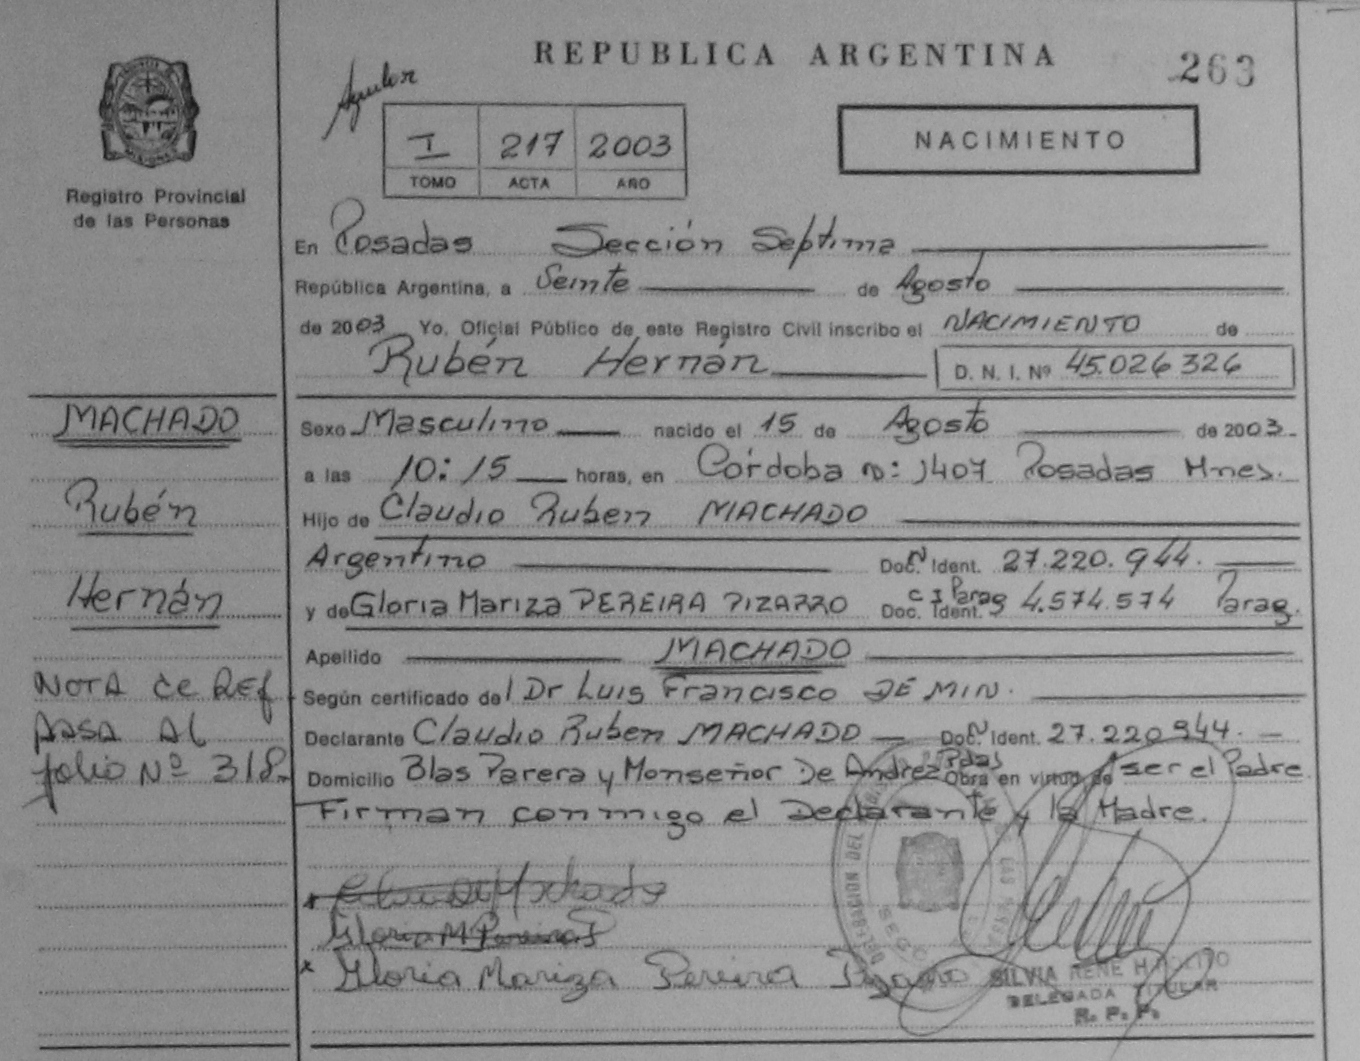 REPUBLICA ARGENTINA
263
Aguilar
I 217 2003
TOMO ACTA AÑO
NACIMIENTO
Registro Provincial
de las Personas
En Posadas Sección Septima
República Argentina, a Veinte de Agosto
de 2003 Yo, Oficial Público de este Registro Civil inscribo el NACIMIENTO de
Rubén Hernán D. N. I. Nº 45.026 326
MACHADO
Rubén
Hernán
NOTA de REF
PASA AL
folio Nº 318
Sexo Masculino nacido el 15 de Agosto de 2003
a las 10:15 horas, en Córdoba nº: 1407 Posadas Mnes.
Hijo de Claudio Ruben MACHADO
Argentino Doc. N Ident. 27.220.944.
y de Gloria Mariza PEREIRA PIZARRO Doc. Ident. C I Parag 4.574.574 Parag.
Apellido MACHADO
Según certificado del Dr Luis Francisco DE MIN.
Declarante Claudio Ruben MACHADO Doc. N Ident. 27.220.944.
Domicilio Blas Parera y Monseñor De Andrez Pdas Obra en virtud de ser el Padre
Firman conmigo el Declarante y la Madre.
Gloria M Pereira P
x Gloria Mariza Pereira Pizarro
DELEGACION DEL
LAS PERS
SILVIA RENE HIPOLITO
DELEGADA TITULAR
R. P. P.